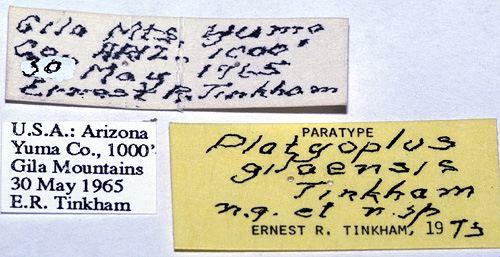 Gila Mts Yuma
Co., ARIZ. 1000'
30 May 1965
Ernest R. Tinkham
U.S.A.: Arizona
Yuma Co., 1000'
Gila Mountains
30 May 1965
E.R. Tinkham
PARATYPE
Platyoplus
gilaensis
Tinkham
n.g. et n.sp
ERNEST R. TINKHAM, 1975